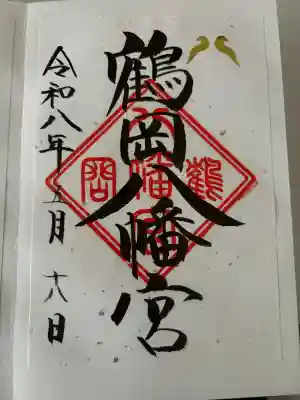 鶴岡八幡宮
鶴岡八幡宮
令和八年五月十八日